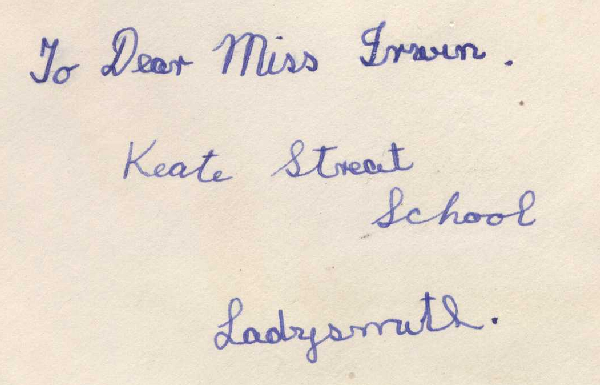 To Dear Miss Irwin.
Keate Street
School
Ladysmith.